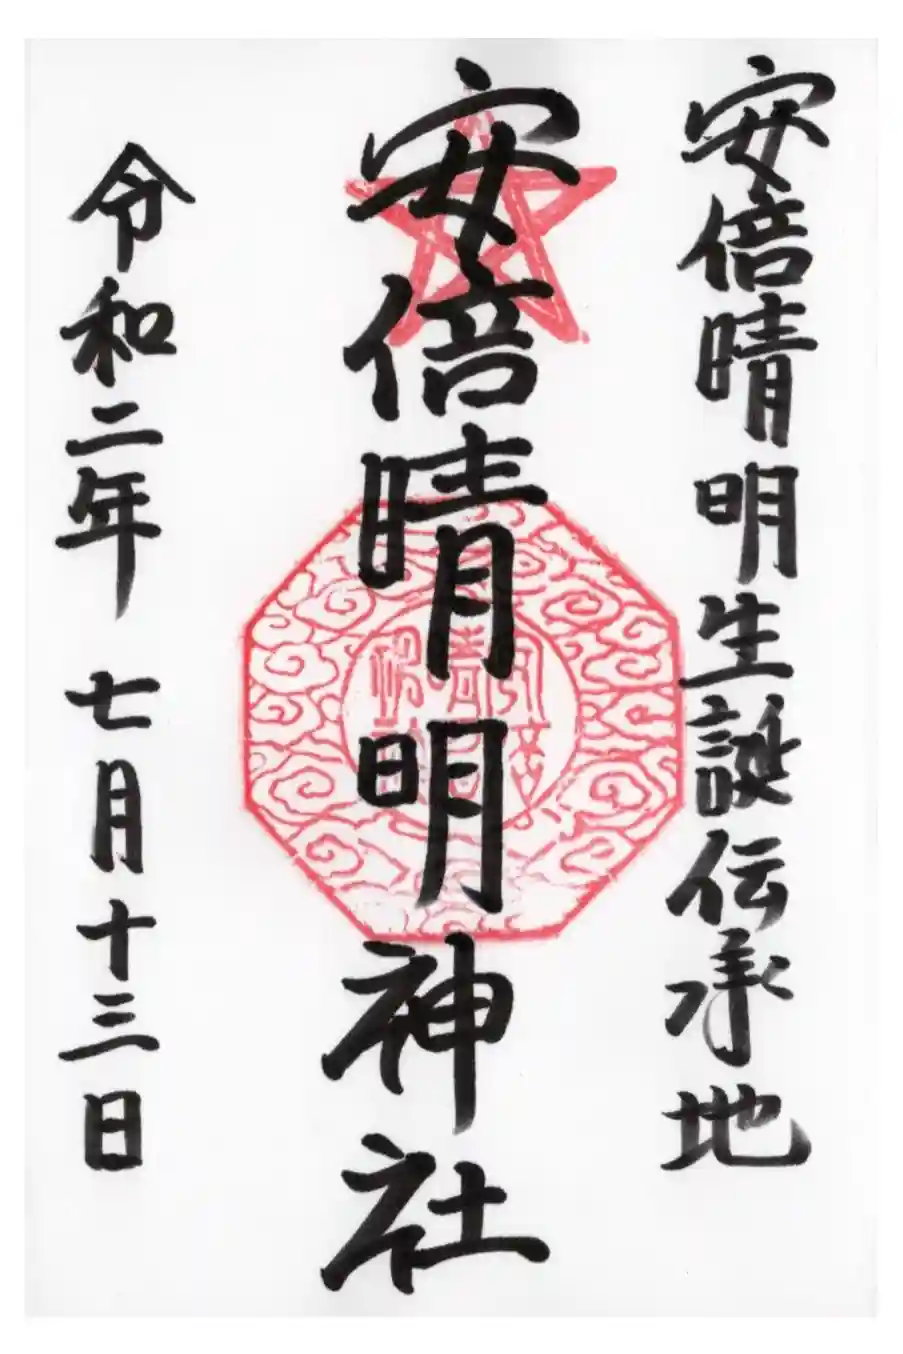 安倍晴明生誕伝承地
安倍晴明神社
令和二年 七月十三日